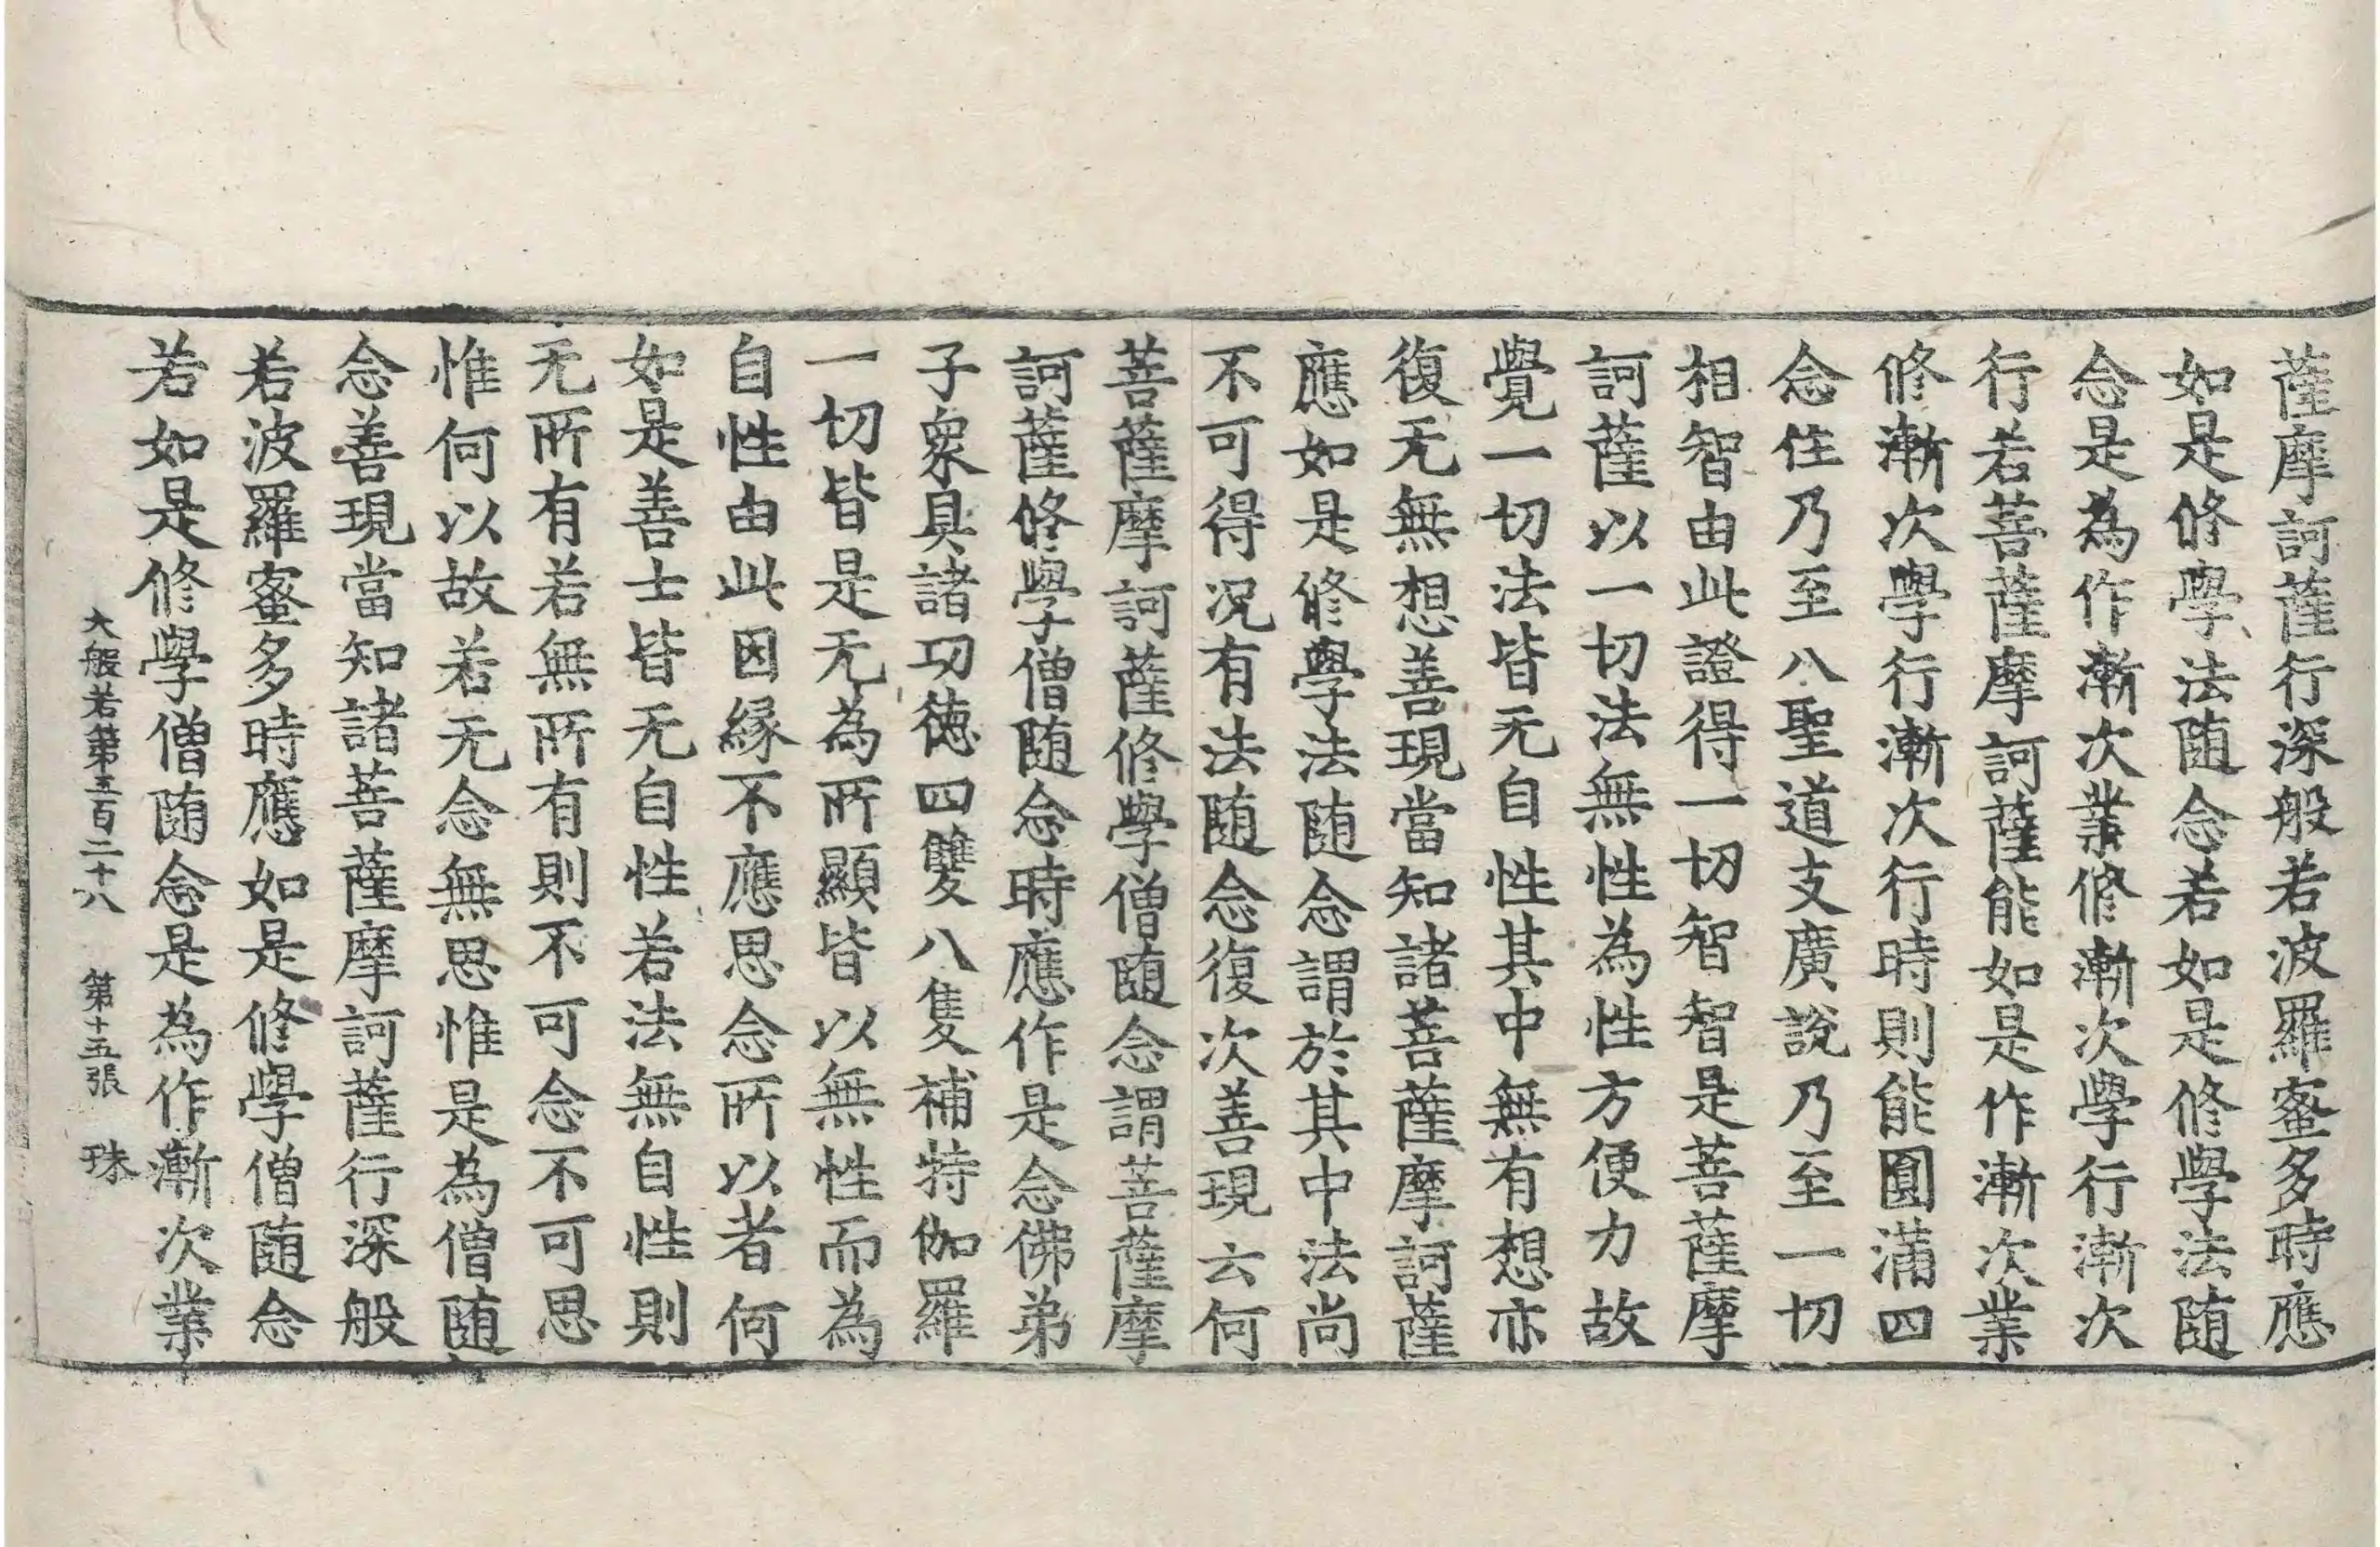 薩摩訶薩行深般若波羅蜜多時應
如是修學法随念若如是修學法随
念是為作漸次業修漸次學行漸次
行若菩薩摩訶薩能如是作漸次業
修漸次學行漸次行時則能圓滿四
念住乃至八聖道支廣說乃至一切
相智由此證得一切智智是菩薩摩
訶薩以一切法無性為性方便力故
覺一切法皆无自性其中無有想亦
復无無想善現當知諸菩薩摩訶薩
應如是修學法随念謂於其中法尚
不可得况有法随念復次善現云何
菩薩摩訶薩修學僧随念謂菩薩摩
訶薩修學僧随念時應作是念佛弟
子衆具諸功徳四雙八隻補特伽羅
一切皆是无為所顯皆以無性而為
自性由此因緣不應思念所以者何
如是善士皆无自性若法無自性則
无所有若無所有則不可念不可思
惟何以故若无念無思惟是為僧随
念善現當知諸菩薩摩訶薩行深般
若波羅蜜多時應如是修學僧随念
若如是修學僧随念是為作漸次業
大般若第五百二十八 第十五張 珠